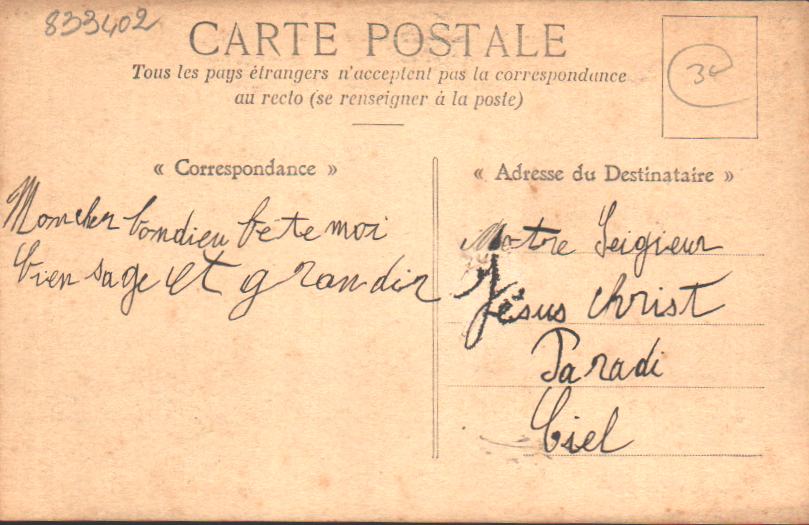 833402
CARTE POSTALE
Tous les pays étrangers n'acceptent pas la correspondance
au recto (se renseigner à la poste)
30
« Correspondance »
Mon cher bondieu fete moi
bien sage et grandir
« Adresse du Destinataire »
Notre Seigieur
Jésus Christ
Paradi
Ciel